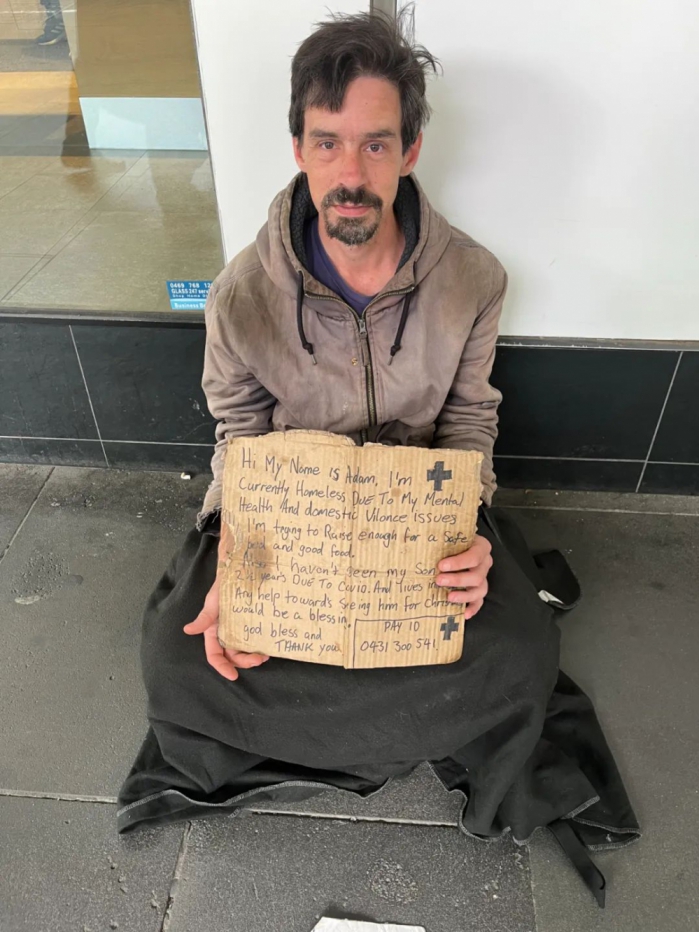 0469 768 12
GLASS 247
Shop Home
Business
Hi My Name is Adam, I'm
Currently Homeless DUE TO My Mental
Health And domestic Vilonce issues
I'm trying to Raise enough for a safe
bed and good food.
Also I haven't seen my Son
2 ½ years DUE TO Covid. And lives in
Any help towards seeing him for Chris
would be a blessin
god bless and
THANK you
PAY ID
0431 300 541